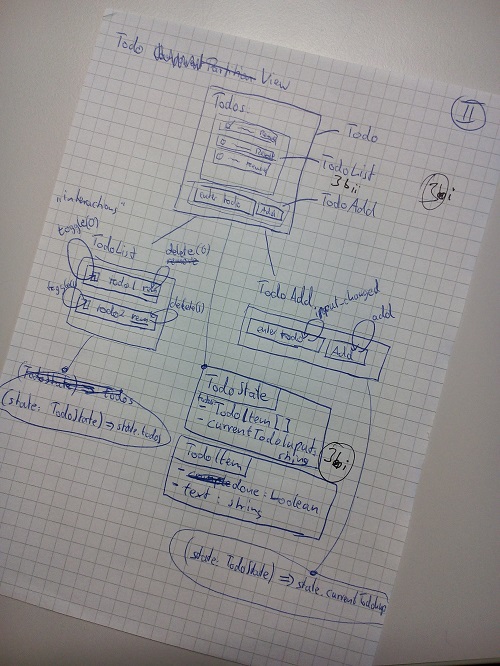 Todo View
II
Todos
Todo
TodoList
3bii
3bi
TodoAdd
enter todo Add
"interactions"
toggle(0)
TodoList
delete(0)
todo1
delete(1)
todo2
TodoAdd
input_changed
add
enter todo Add
(state: TodoState) => state.todos
TodoState
- TodoItem[]
- currentTodoInput:
string
3bi
TodoItem
- done: boolean
- text: string
(state: TodoState) => state.currentTodoInp